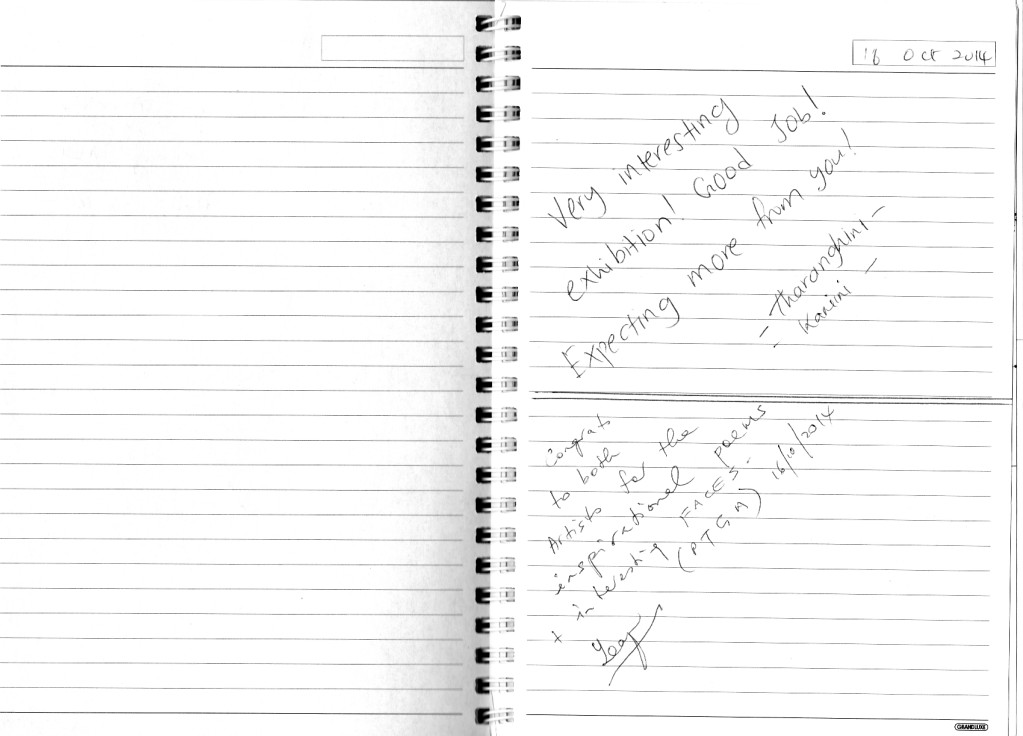 16 Oct 2014
Very interesting
exhibition! Good Job!
Expecting more from you!
- Tharanghini -
- Karini -
Congrats
to both
Artists for the
inspirational poems
+ interesting FACES.
(PTGA) 16/10/2014
Yeap
GRANDLUXE